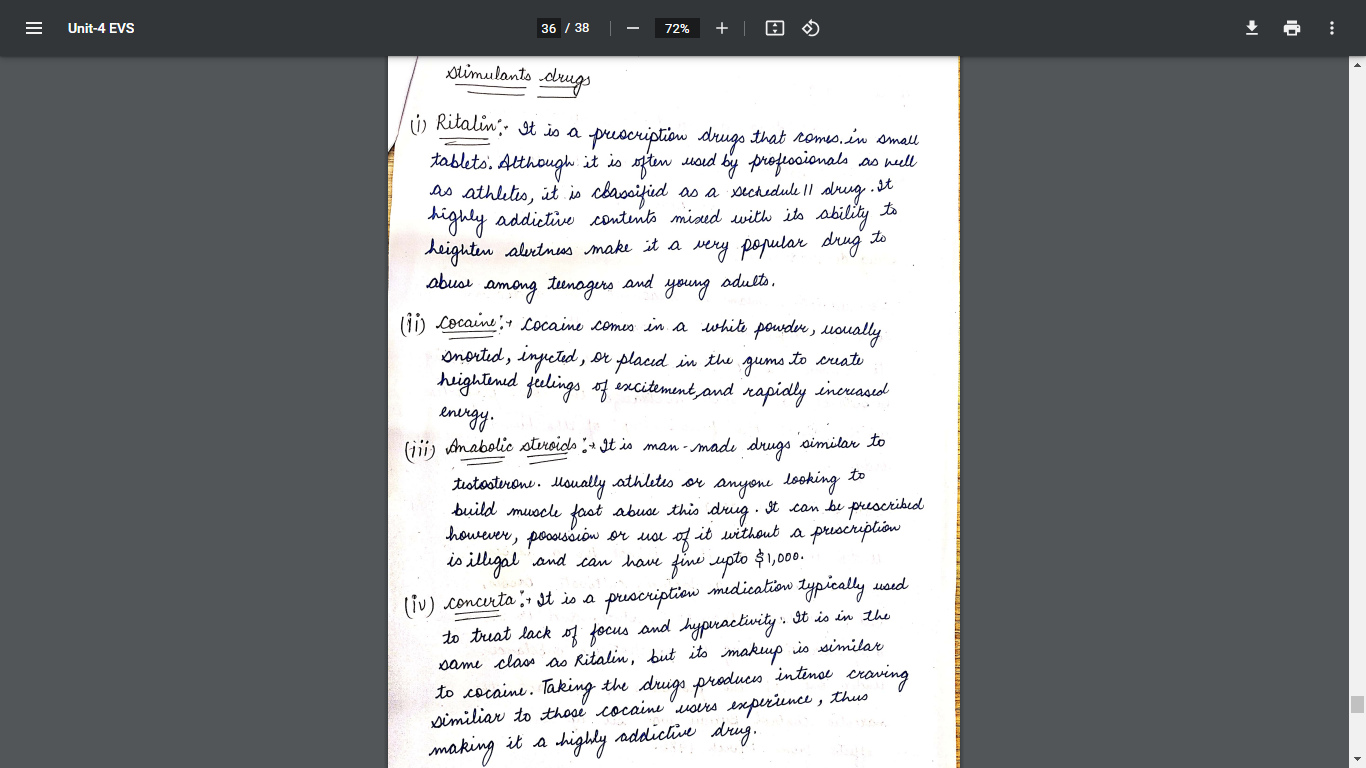 Unit-4 EVS
36 / 38
72%
Stimulants drugs
(i) Ritalin:- It is a prescription drugs that comes in small
tablets. Although it is often used by professionals as well
as athletes, it is classified as a schedule II drug. It
highly addictive contents mixed with its ability to
heighten alertness make it a very popular drug to
abuse among teenagers and young adults.
(ii) Cocaine:- Cocaine comes in a white powder, usually
snorted, injected, or placed in the gums to create
heightened feelings of excitement, and rapidly increased
energy.
(iii) Anabolic steroids:- It is man-made drugs similar to
testosterone. Usually athletes or anyone looking to
build muscle fast abuse this drug. It can be prescribed
however, possession or use of it without a prescription
is illegal and can have fine upto $1,000.
(iv) Concerta:- It is a prescription medication typically used
to treat lack of focus and hyperactivity. It is in the
same class as Ritalin, but its makeup is similar
to cocaine. Taking the drugs produces intense craving
similiar to those cocaine users experience, thus
making it a highly addictive drug.